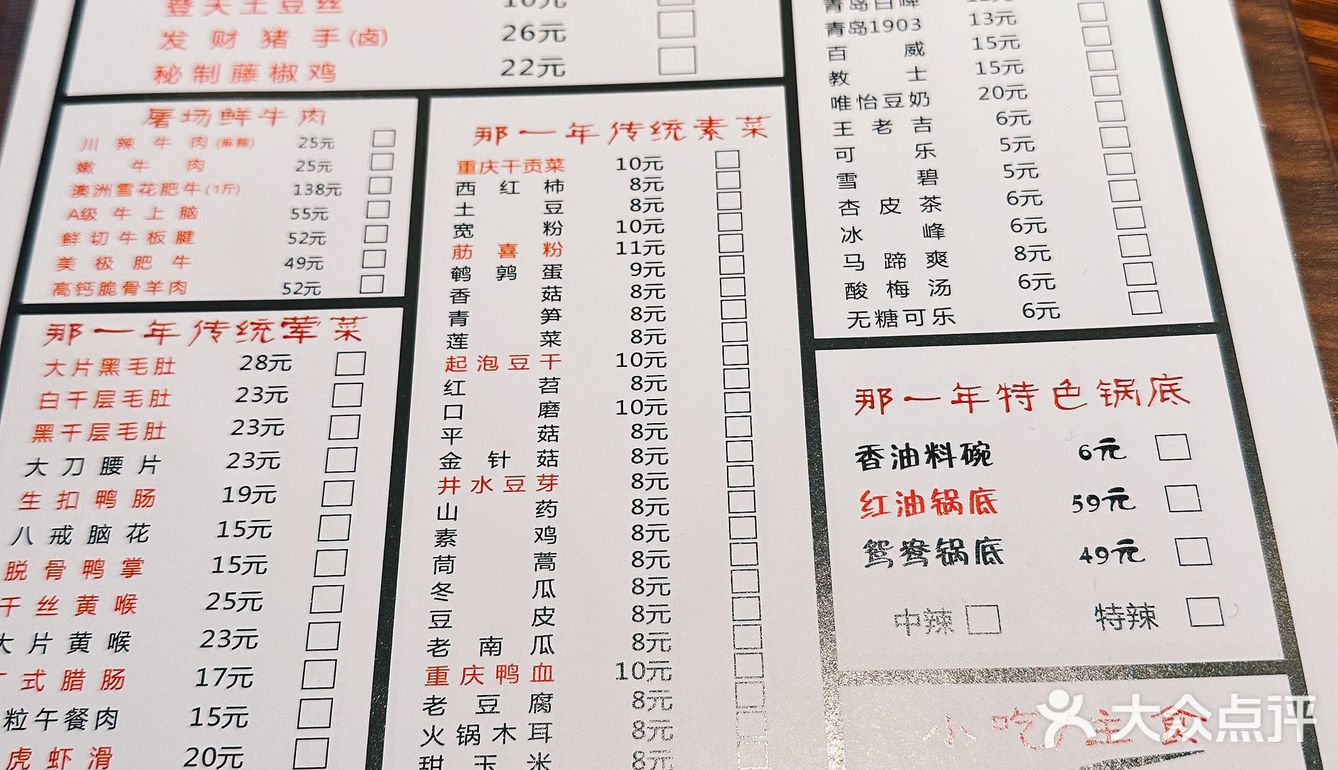 登天土豆丝 16元
发财猪手(卤) 26元
秘制藤椒鸡 22元
屠场鲜牛肉
川辣牛肉(麻辣) 25元
嫩牛肉 25元
澳洲雪花肥牛(1斤) 138元
A级牛上脑 55元
鲜切牛板腱 52元
美极肥牛 49元
高钙脆骨羊肉 52元
那一年传统荤菜
大片黑毛肚 28元
白千层毛肚 23元
黑千层毛肚 23元
大刀腰片 23元
生扣鸭肠 19元
八戒脑花 15元
脱骨鸭掌 15元
千丝黄喉 25元
大片黄喉 23元
广式腊肠 17元
粒午餐肉 15元
虎虾滑 20元
那一年传统素菜
重庆干贡菜 10元
西红柿 8元
土豆 8元
宽粉 10元
筋喜粉 11元
鹌鹑蛋 9元
香菇 8元
青笋 8元
莲菜 8元
起泡豆干 10元
红苕 8元
口磨 10元
平菇 8元
金针菇 8元
井水豆芽 8元
山药 8元
素鸡 8元
茼蒿 8元
冬瓜 8元
豆皮 8元
老南瓜 8元
重庆鸭血 10元
老豆腐 8元
火锅木耳 8元
甜玉米 8元
青岛白啤
青岛1903 13元
百威 15元
教士 15元
唯怡豆奶 20元
王老吉 6元
可乐 5元
雪碧 5元
杏皮茶 6元
冰峰 6元
马蹄爽 8元
酸梅汤 6元
无糖可乐 6元
那一年特色锅底
香油料碗 6元
红油锅底 59元
鸳鸯锅底 49元
中辣 特辣
小吃/主食
大众点评